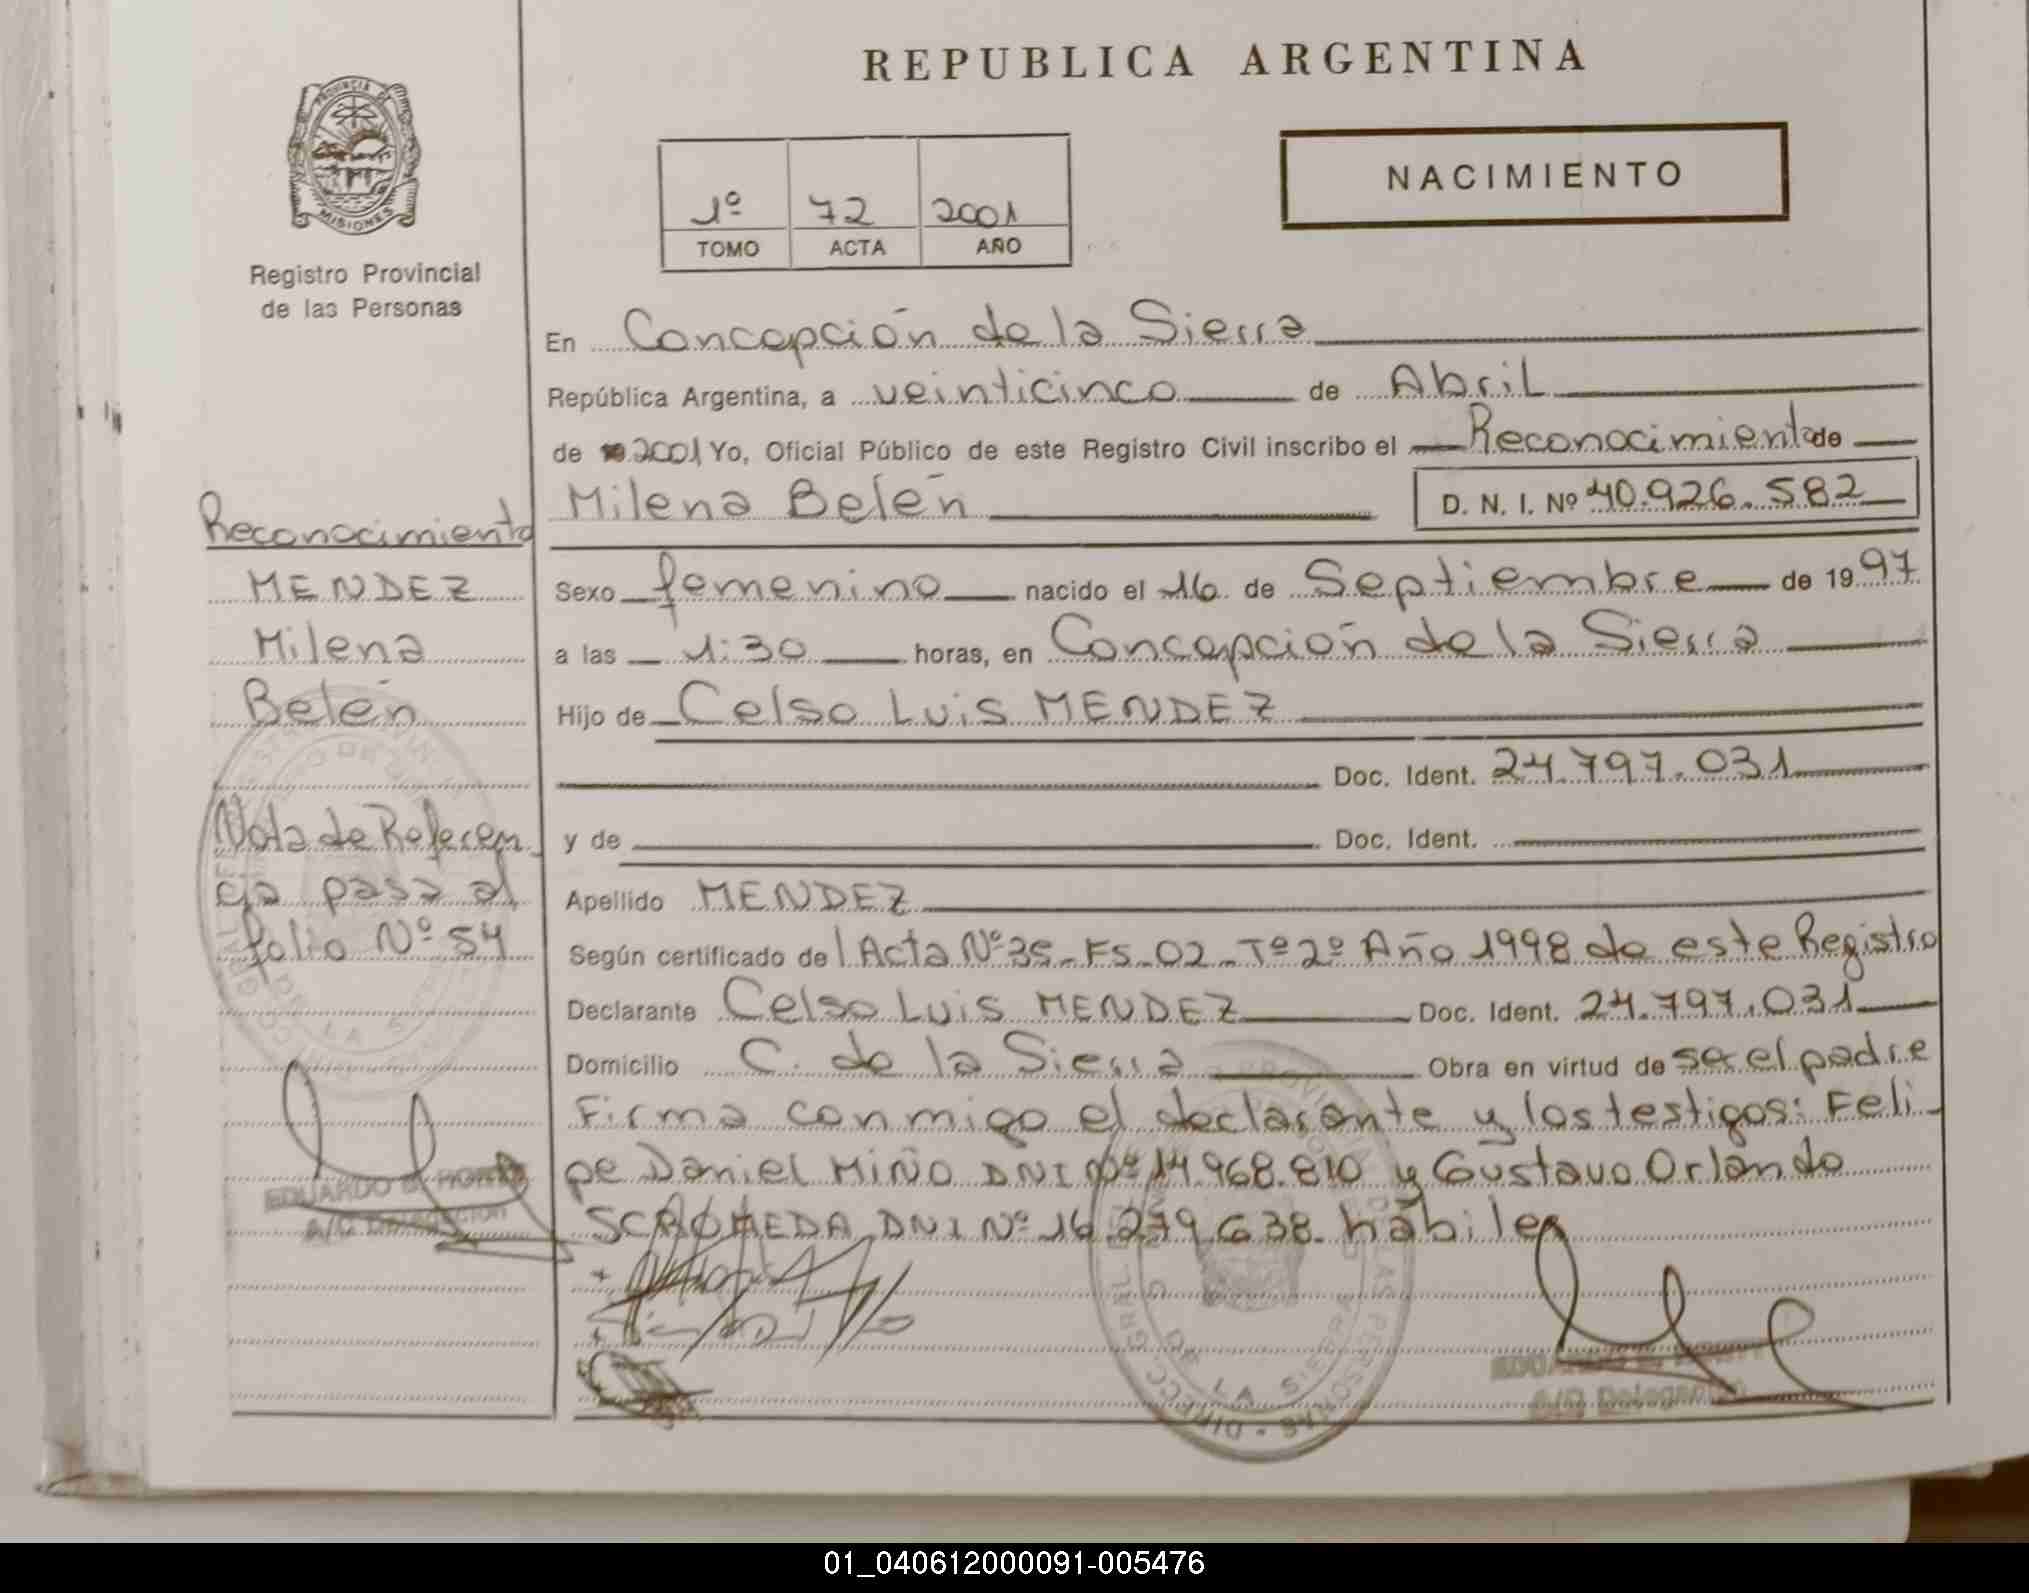 REPUBLICA ARGENTINA
PROVINCIA DE
MISIONES
Registro Provincial
de las Personas
1º 72 2001
TOMO ACTA AÑO
NACIMIENTO
En Concepción de la Sierra
República Argentina, a veinticinco de Abril
de 2001 Yo, Oficial Público de este Registro Civil inscribo el Reconocimiento de
Milena Belén D. N. I. Nº 40.926.582
Sexo femenino nacido el 16 de Septiembre de 1997
a las 1:30 horas, en Concepción de la Sierra
Hijo de Celso Luis MENDEZ
Doc. Ident. 24.797.031
y de Doc. Ident.
Apellido MENDEZ
Según certificado del Acta Nº 35 - Fs. 02 - Tº 2º Año 1998 de este Registro
Declarante Celso Luis MENDEZ Doc. Ident. 24.797.031
Domicilio C. de la Sierra Obra en virtud de ser el padre
Firma conmigo el declarante y los testigos: Feli-
pe Daniel MIÑO DNI Nº 14.968.810 y Gustavo Orlando
DNI Nº 16.279.638. hábiles
Reconocimiento
MENDEZ
Milena
Belén
Nota de Referen-
cia pasa al
folio Nº 54
EDUARDO
A/C Delegación
A/C Delegación
DE LA SIERRA
01_040612000091-005476